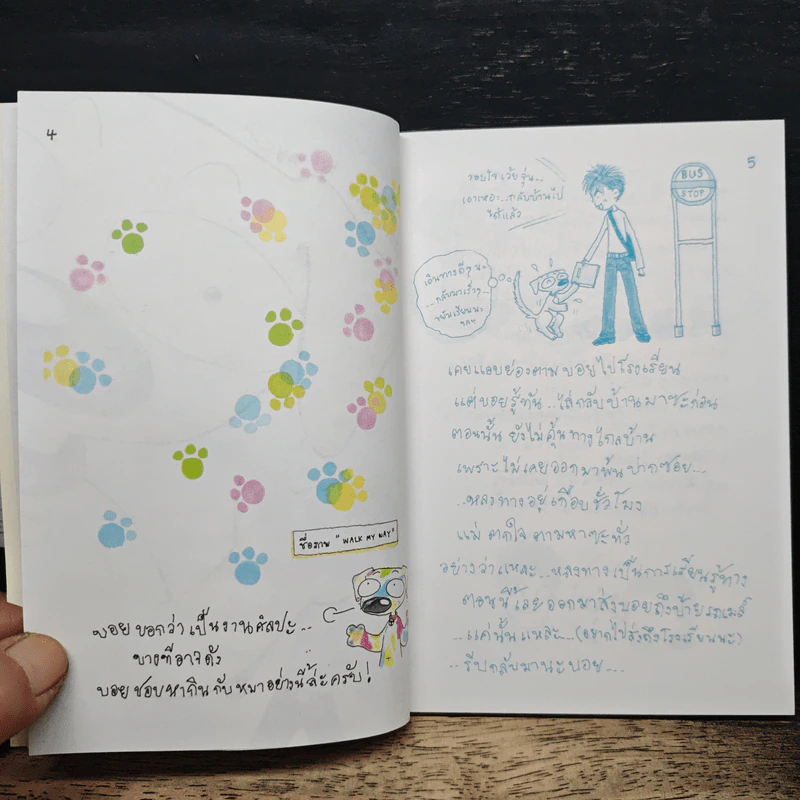 4
ชื่อภาพ "WALK MY WAY"
บอย บอกว่า เป็นงานศิลปะ...
บางทีอาจดัง
บอย ชอบหากินกับหมาอย่างนี้ล่ะครับ!
5
ขอบใจเว้ย จุ่น...
เอาเหอะ...กลับบ้านไป
ได้แล้ว
BUS
STOP
เดินทางดีๆ นะ
...กลับมาเร็วๆ...
ขยันเรียนนะ
เคยแอบย่องตามบอยไปโรงเรียน
แต่บอยรู้ทัน...ไล่กลับบ้านมาซะก่อน
ตอนนั้น ยังไม่คุ้นทางไกลบ้าน
เพราะไม่เคยออกมาพ้นปากซอย...
...หลงทางอยู่เกือบชั่วโมง
แม่ ตกใจ ตามหาซะทั่ว
อย่างว่าแหละ...หลงทาง เป็นการเรียนรู้ทาง
ตอนนี้เลยออกมาส่งบอยถึงป้ายรถเมล์
...แค่นั้นแหละ...(อยากไปส่งถึงโรงเรียนนะ)
..รีบกลับมานะบอย...